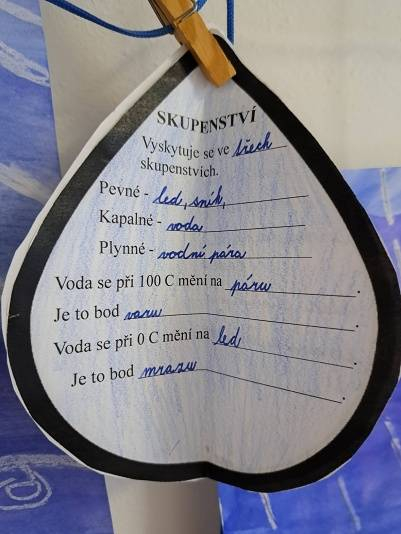 SKUPENSTVÍ
Vyskytuje se ve třech
skupenstvích.
Pevné - led, sníh,
Kapalné - voda
Plynné - vodní pára
Voda se při 100 C mění na páru.
Je to bod varu.
Voda se při 0 C mění na led.
Je to bod mrazu.